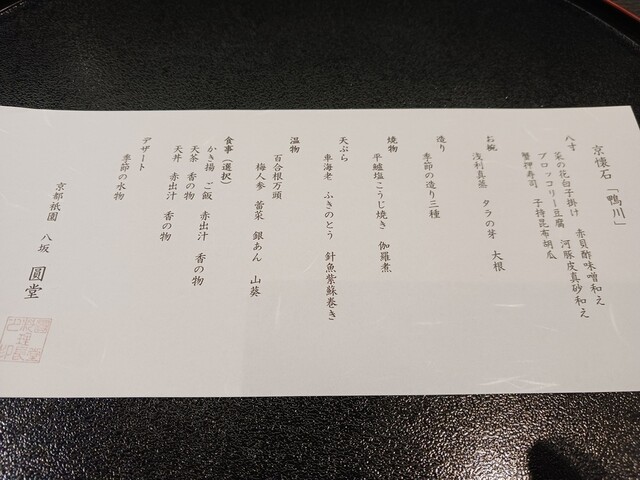 京懐石「鴨川」
八寸
菜の花白子掛け 赤貝酢味噌和え
ブロッコリー豆腐 河豚皮真砂和え
蟹押寿司 子持昆布胡瓜
お椀
浅利真蒸 タラの芽 大根
造り
季節の造り三種
焼物
平鱸塩こうじ焼き 伽羅煮
天ぷら
車海老 ふきのとう 針魚紫蘇巻き
温物
百合根万頭
梅人参 蕾菜 銀あん 山葵
食事(選択)
かき揚 ご飯 赤出汁 香の物
天茶 香の物
天丼 赤出汁 香の物
デザート
季節の水物
京都祇園 八坂 圓堂